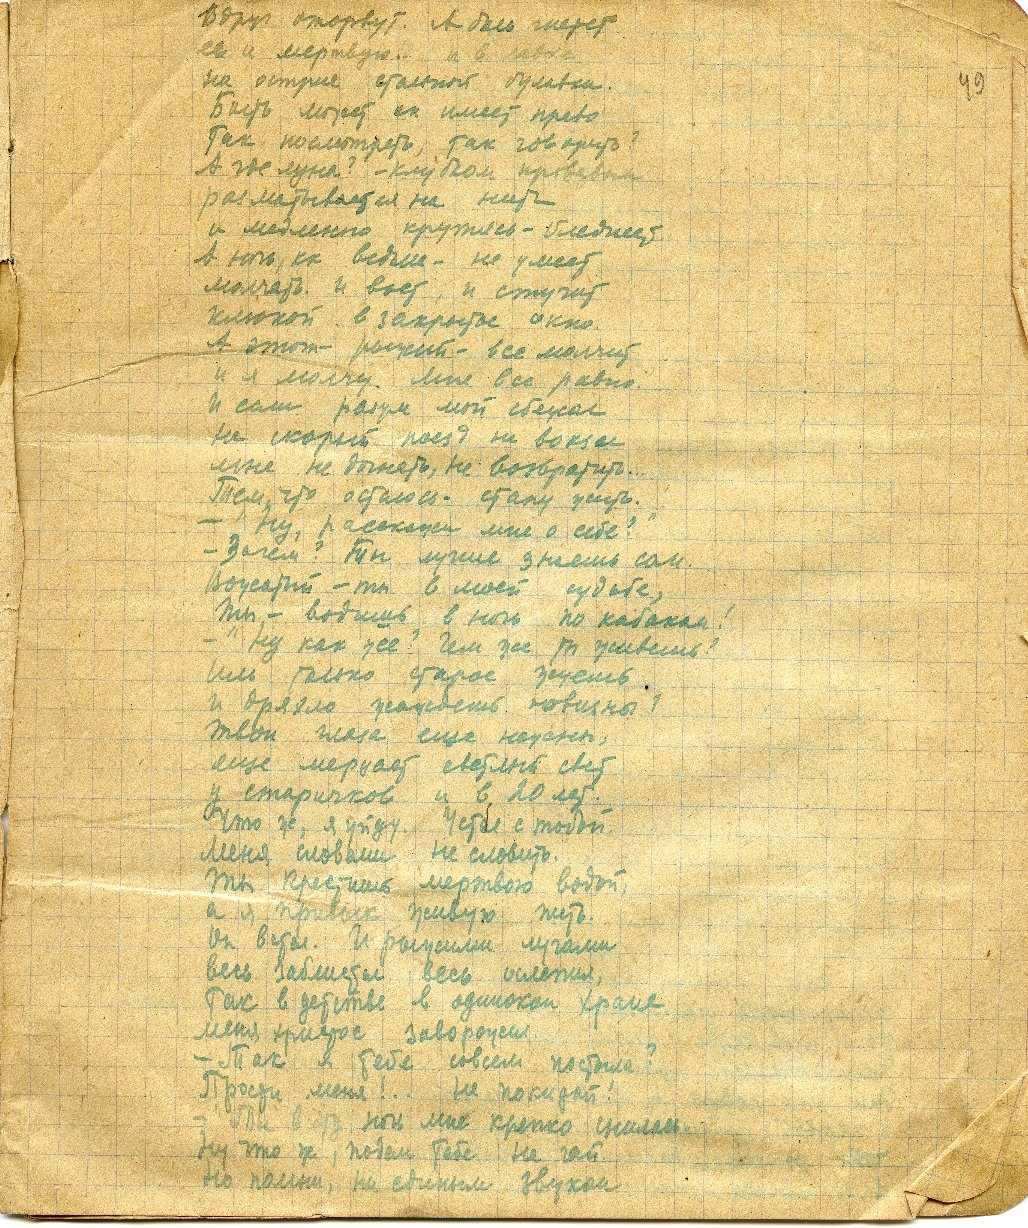 49
Вдруг оторвут. А боль гнетет
ее и мертвую. и в
на острие стальной булавки.
Быть может он имеет право
Так посмотреть, так говорить?
А где луна? – клубком кровавым
разматывается на нить
и медленно кружась – бледнеет
А ночь, как ведьма – не умеет
молчать. и воет, и стучит
клюкой в закрытое окно.
А этот – рыжий – все молчит
и я молчу. Мне все равно.
И сам разум мой сбежал
на скорый поезд на вокзал
мне не догнать, не возвратить...
Тем, что осталось – стану жить.
– "Ну, расскажи мне о себе?"
– Зачем? Ты лучше знаешь сам.
Вожатый – ты в моей судьбе,
Ты – водишь в ночь по кабакам!
– "Ну как же? Чем же ты живешь?
Иль только старое жуешь
и дрябло жаждешь новизны?
Твои глаза еще нежны,
еще мерцает светлый свет
у старичков и в 20 лет.
Что ж, я уйду. Устал с тобой.
Меня словами не словить.
Ты крестишь мертвою водой,
а я привык живую пить.
Он встал. И рыжими лучами
весь заблистал, весь ослепил,
Так в детстве в одиноком храме
меня христос заворожил.
– Так я тебе совсем постыла?
Прости меня!.. Не покидай!
– Ты в эту ночь мне крепко снилась.
Ну что ж, подам тебе на чай.
но помни, ни единым звуком